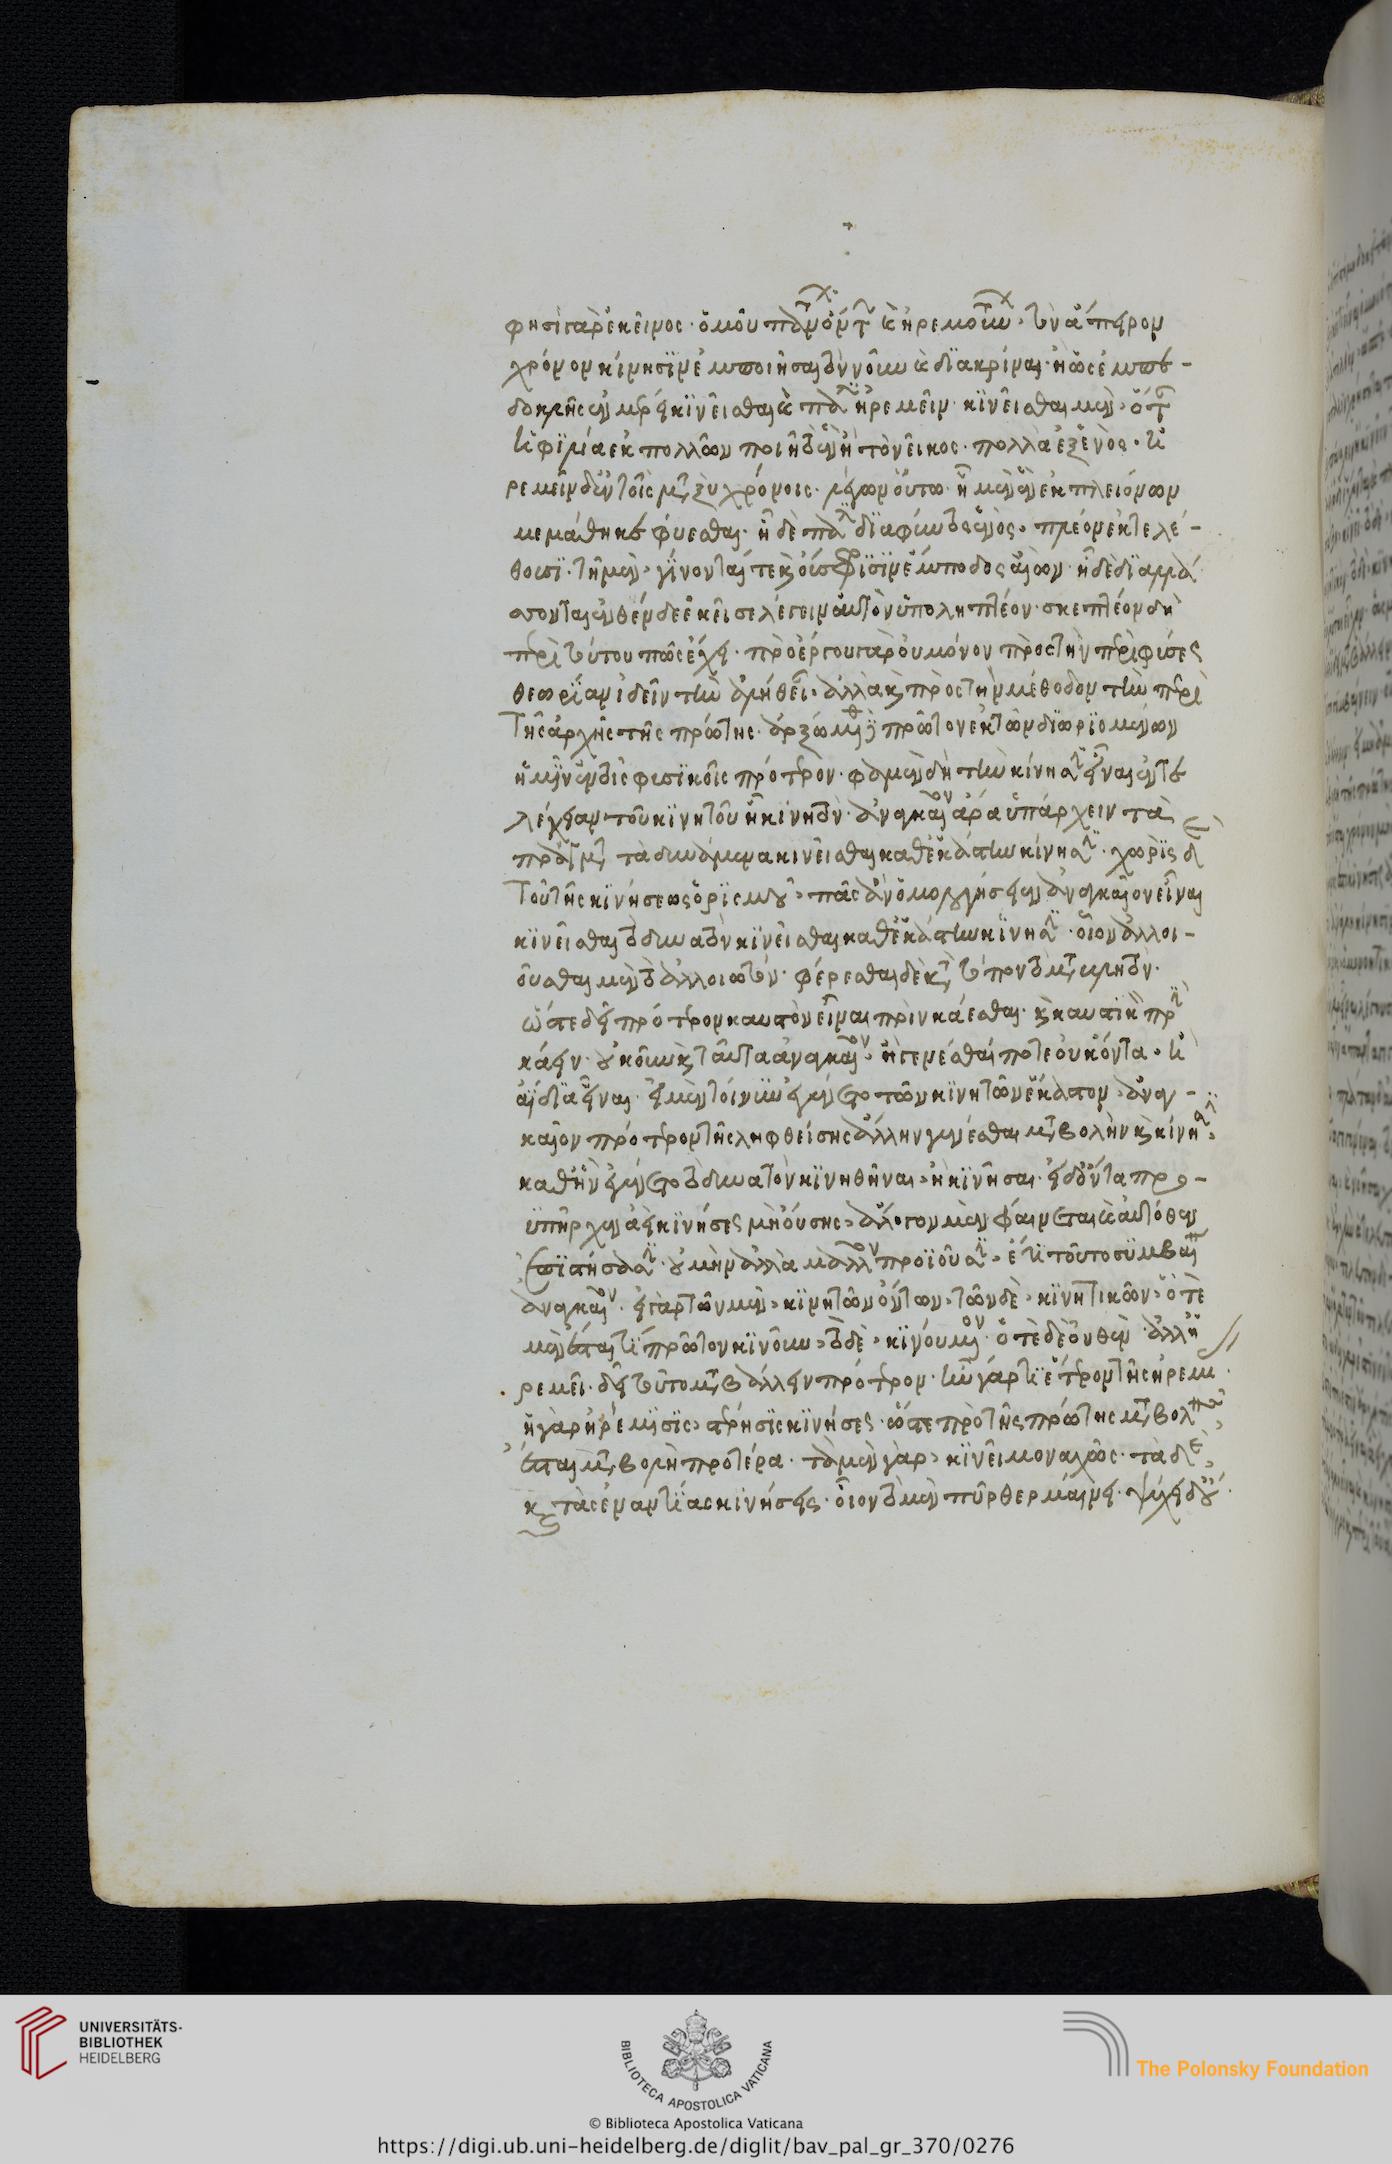 φησὶ γὰρ ἐκεῖνος· ὁμοῦ πάντων ὄντων καὶ ἠρεμούντων· τὸν ἄπειρον
χρόνον κίνησιν ἐμποιῆσαι τὸν νοῦν καὶ διακρίναι· ἢ ὡς ἐμπε-
δοκλῆς ἐν μέρει κινεῖσθαι καὶ πάλιν ἠρεμεῖν· κινεῖσθαι μὲν· ὅταν
ἡ φιλία ἐκ πολλῶν ποιῇ τὸ ἓν ἢ τὸ νεῖκος· πολλὰ ἐξ ἑνὸς· ἠ
ρεμεῖν δ' ἐν τοῖς μεταξὺ χρόνοις· λέγων οὕτω· ᾗ μὲν ἓν ἐκ πλειόνων
μεμάθηκε φύεσθαι· ἢ δὲ πάλιν διαφύντος ἑνὸς· πλέον ἐκτελέ-
θουσι· τῇ μὲν· γίνονταί τε καὶ οὔ σφισιν ἔμποδος αἰών· ᾗ δὲ διαλλά
σσονται ἐνθένδε ἐκεῖσε λέγειν αὐτὸν ὑποληπτέον· σκεπτέον δὴ
περὶ τούτου πῶς ἔχει· πρὸ ἔργου γὰρ οὐ μόνον πρὸς τὴν περὶ φύσεως
θεωρίαν ἰδεῖν τὴν ἀλήθειαν· ἀλλὰ καὶ πρὸς τὴν μέθοδον τὴν περὶ
τῆς ἀρχῆς τῆς πρώτης· ἀρξώμεθα δὲ πρῶτον ἐκ τῶν διωρισμένων
ἡμῖν ἐν τοῖς φυσικοῖς πρότερον· φαμὲν δὴ τὴν κίνησιν εἶναι ἐντε
λέχειαν τοῦ κινητοῦ ᾗ κινητὸν· ἀναγκαῖον ἄρα ὑπάρχειν τὰ
πράγματα τὰ δυνάμενα κινεῖσθαι καθ' ἑκάστην κίνησιν· χωρὶς δὲ
τοῦ τῆς κινήσεως ὁρισμοῦ· πᾶς ἂν ὁμολογήσειεν ἀναγκαῖον εἶναι
κινεῖσθαι τὸ δυνατὸν κινεῖσθαι καθ' ἑκάστην κίνησιν· οἷον ἀλλοι-
οῦσθαι μὲν τὸ ἀλλοιωτόν· φέρεσθαι δὲ κατὰ τόπον τὸ μεταβλητὸν·
ὥστε δεῖ πρότερον καυστὸν εἶναι πρὶν κάεσθαι· καὶ καυστικὸν πρὶν
κάειν· οὐκοῦν καὶ ταῦτα ἀναγκαῖον· ἢ γενέσθαι ποτε οὐκ ὄντα· ἢ
ἀΐδια εἶναι· εἰ μὲν τοίνυν ἐγένετο τῶν κινητῶν ἕκαστον· ἀναγ-
καῖον πρότερον τῆς ληφθείσης ἄλλην γενέσθαι μεταβολὴν καὶ κίνησιν·
καθ' ἣν ἐγένετο τὸ δυνατὸν κινηθῆναι· ἢ κινῆσαι· εἰ δ' ὄντα προ-
ϋπῆρχεν ἀεὶ κινήσεως μὴ οὔσης· ἄλογον μὲν φαίνεται καὶ αὐτόθεν
ἐπιστήσασιν· οὐ μὴν ἀλλὰ μᾶλλον προϊοῦσιν· ἔτι τοῦτο συμβαίνειν
ἀναγκαῖον· εἰ γὰρ τῶν μὲν· κινητῶν ὄντων· τῶν δὲ· κινητικῶν· ὁτὲ
μὲν ἔσται τί πρῶτον κινοῦν· τὸ δὲ· κινούμενον· ὁτὲ δὲ οὐθὲν· ἀλλ' ἠ
ρεμεῖ· δεῖ τοῦτο μεταβάλλειν πρότερον· ἦν γάρ τι ἕτερον τῆς ἠρεμι
ἡ γὰρ ἠρέμησις· στέρησις κινήσεως· ὥστε πρὸ τῆς πρώτης μεταβολῆς
ἔσται μεταβολὴ προτέρα· τὰ μὲν γὰρ· κινεῖ μοναχῶς· τὰ δὲ
καὶ τὰς ἐναντίας κινήσεις· οἷον τὸ μὲν πῦρ θερμαίνει· ψύχει δ' οὔ·
UNIVERSITÄTS-
BIBLIOTHEK
HEIDELBERG
BIBLIOTECA APOSTOLICA VATICANA
The Polonsky Foundation
© Biblioteca Apostolica Vaticana
https://digi.ub.uni-heidelberg.de/diglit/bav_pal_gr_370/0276